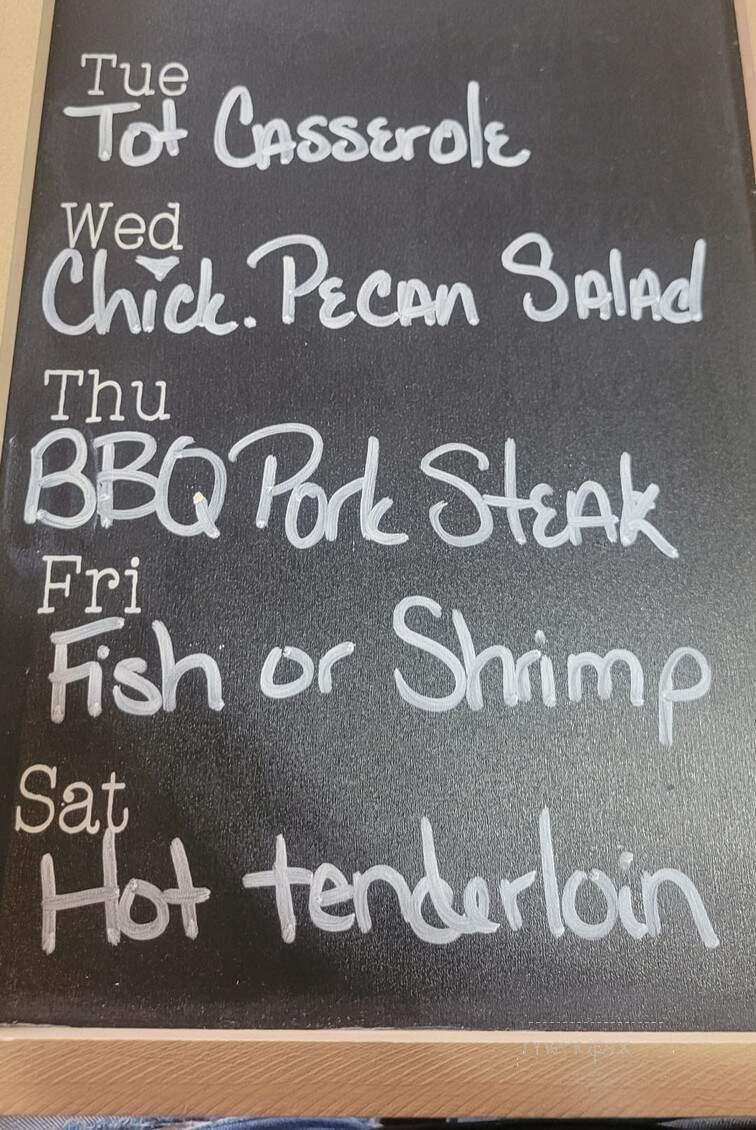 Tue
Tot Casserole
Wed
Chick. Pecan Salad
Thu
BBQ Pork Steak
Fri
Fish or Shrimp
Sat
Hot tenderloin